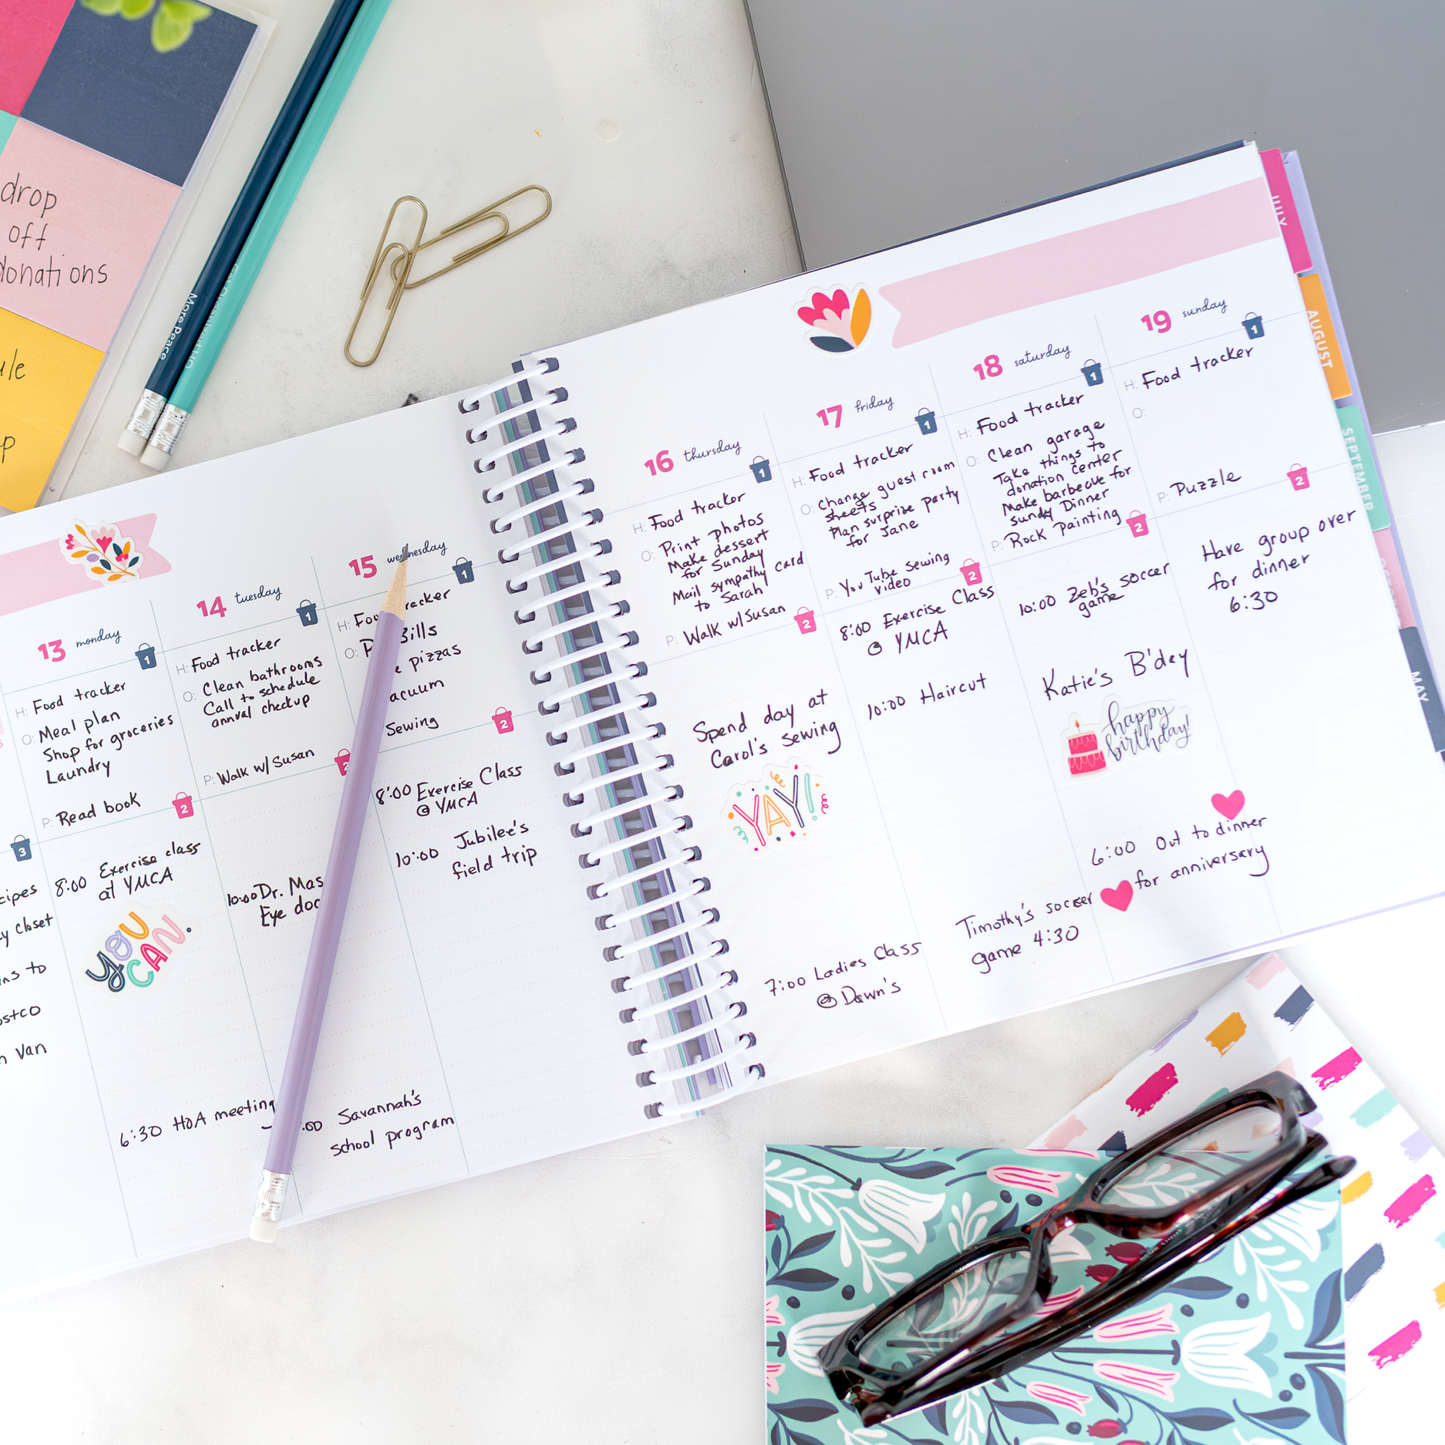 drop
off
donations
More Peace
13 monday
1
H: Food tracker
O: Meal plan
Shop for groceries
Laundry
P: Read book
2
8:00 Exercise class
at YMCA
YOU
CAN.
6:30 HOA meeting
3
y closet
ns to
n Van
14 tuesday
1
H: Food tracker
O: Clean bathrooms
Call to schedule
annual checkup
P: Walk w/ Susan
2
10:00 Dr. Mas
Eye doc
:00 Savannah's
school program
15 wednesday
1
H: Food tracker
O: Bills
pizzas
Sewing
2
8:00 Exercise Class
@ YMCA
10:00 Jubilee's
field trip
16 thursday
1
H: Food tracker
O: Print photos
Make dessert
for Sunday
Mail sympathy card
to Sarah
P: Walk w/Susan
2
Spend day at
Carol's sewing
YAY!
7:00 Ladies Class
@ Dawn's
17 friday
1
H: Food tracker
O: Change guest room
sheets
Plan surprise party
for Jane
P: YouTube sewing
video
2
8:00 Exercise Class
@ YMCA
10:00 Haircut
Timothy's soccer
game 4:30
18 saturday
1
H: Food tracker
O: Clean garage
Take things to
donation center
Make barbecue for
sunday Dinner
P: Rock Painting
2
10:00 Zeb's soccer
game
Katie's B'day
happy
birthday!
6:00 Out to dinner
for anniversary
19 sunday
1
H: Food tracker
O:
P: Puzzle
2
Have group over
for dinner
6:30
JULY
AUGUST
SEPTEMBER
MAY